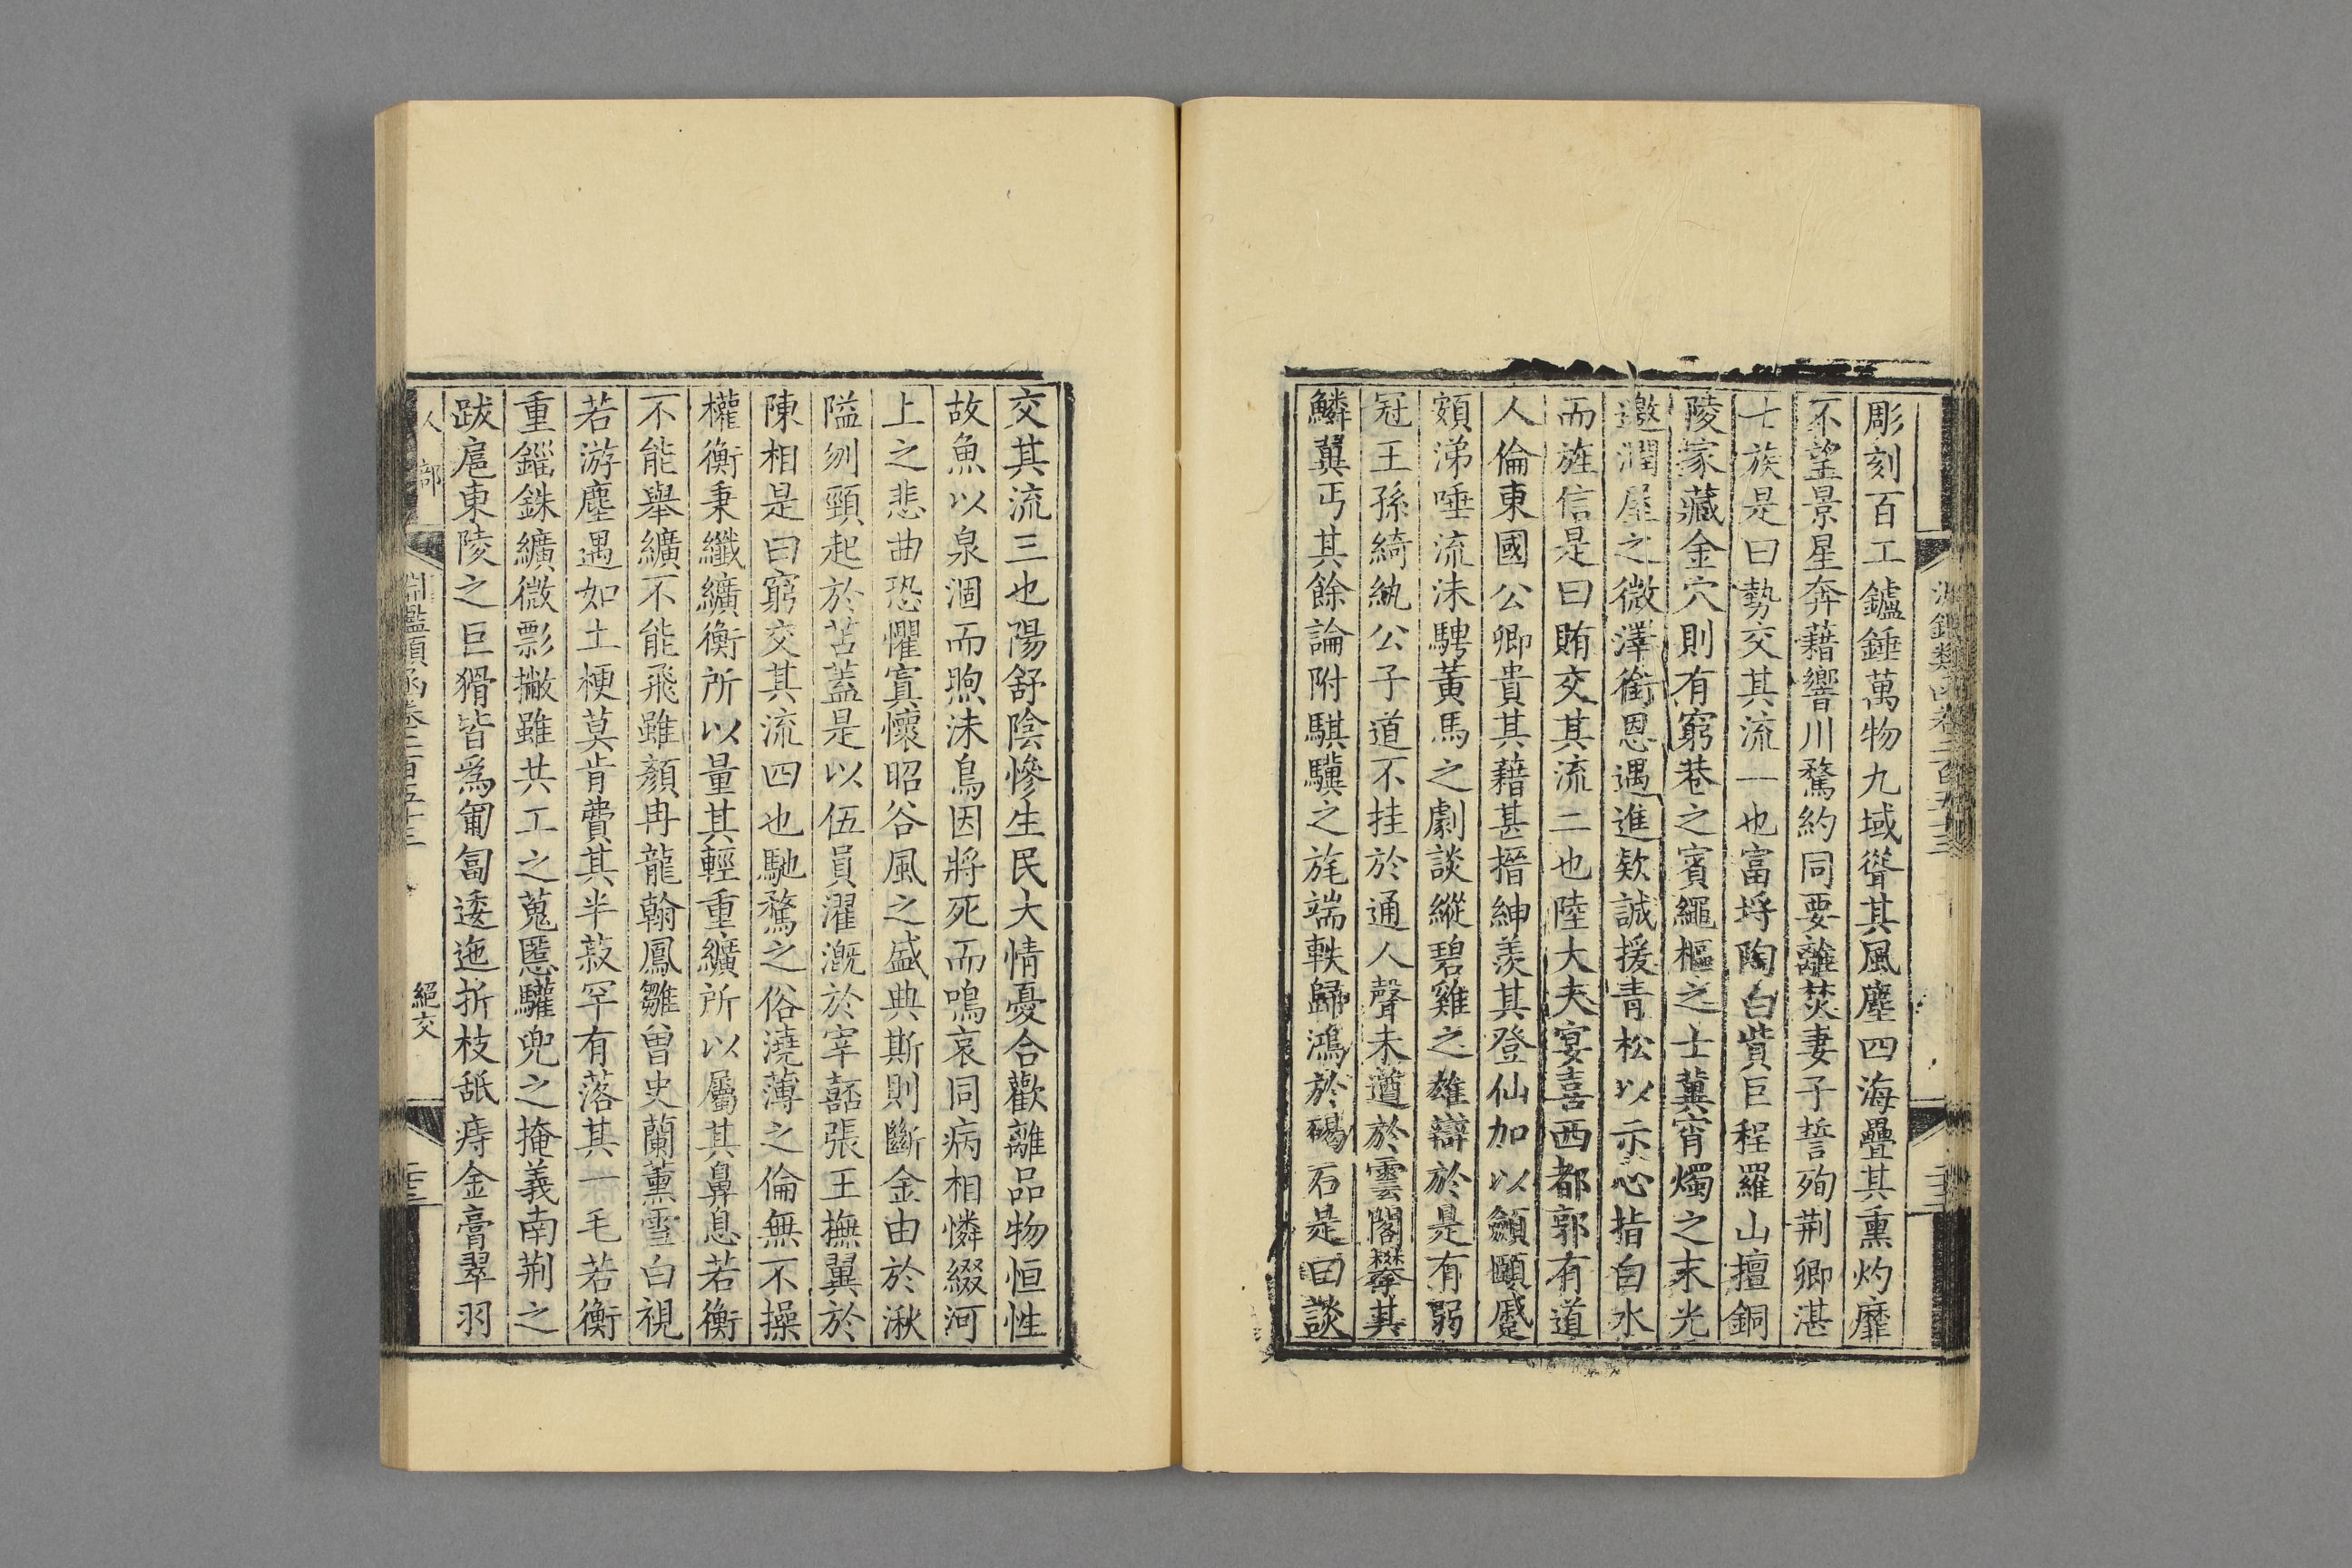 彫刻百工鑪錘萬物九域聳其風塵四海疊其熏灼靡
不望景星奔藉響川騖約同要離焚妻子誓殉荆卿湛
七族是曰勢交其流一也富埒陶白貲巨程羅山擅銅
陵家藏金穴則有窮巷之賓繩樞之士冀宵燭之末光
邀潤屋之微澤銜恩遇進欵誠援青松以示心指白水
而旌信是曰賄交其流二也陸大夫宴喜西都郭有道
人倫東國公卿貴其藉甚搢紳羨其登仙加以顩頤蹙
頞涕唾流沬騁黃馬之劇談縱碧雞之雄辯於是有弱
冠王孫綺紈公子道不挂於通人聲未遒於雲閣攀其
鱗翼丐其餘論附騏驥之旄端軼歸鴻於碣石是曰談
交其流三也陽舒陰慘生民大情憂合歡離品物恒性
故魚以泉涸而煦沬鳥因將死而鳴哀同病相憐綴河
上之悲曲恐懼寘懷昭谷風之盛典斯則斷金由於湫
隘刎頸起於苫蓋是以伍員濯溉於宰嚭張王撫翼於
陳相是曰窮交其流四也馳騖之俗澆薄之倫無不操
權衡秉纖纊衡所以量其輕重纊所以屬其鼻息若衡
不能舉纊不能飛雖顏冉龍翰鳳雛曾史蘭薰雪白視
若游塵遇如土梗莫肯費其半菽罕有落其一毛若衡
重錙銖纊微影撇雖共工之蒐慝驩兜之掩義南荆之
跋扈東陵之巨猾皆爲匍匐逶迤折枝舐痔金膏翠羽
人部
淵鑑類函卷二百五十三
絕交